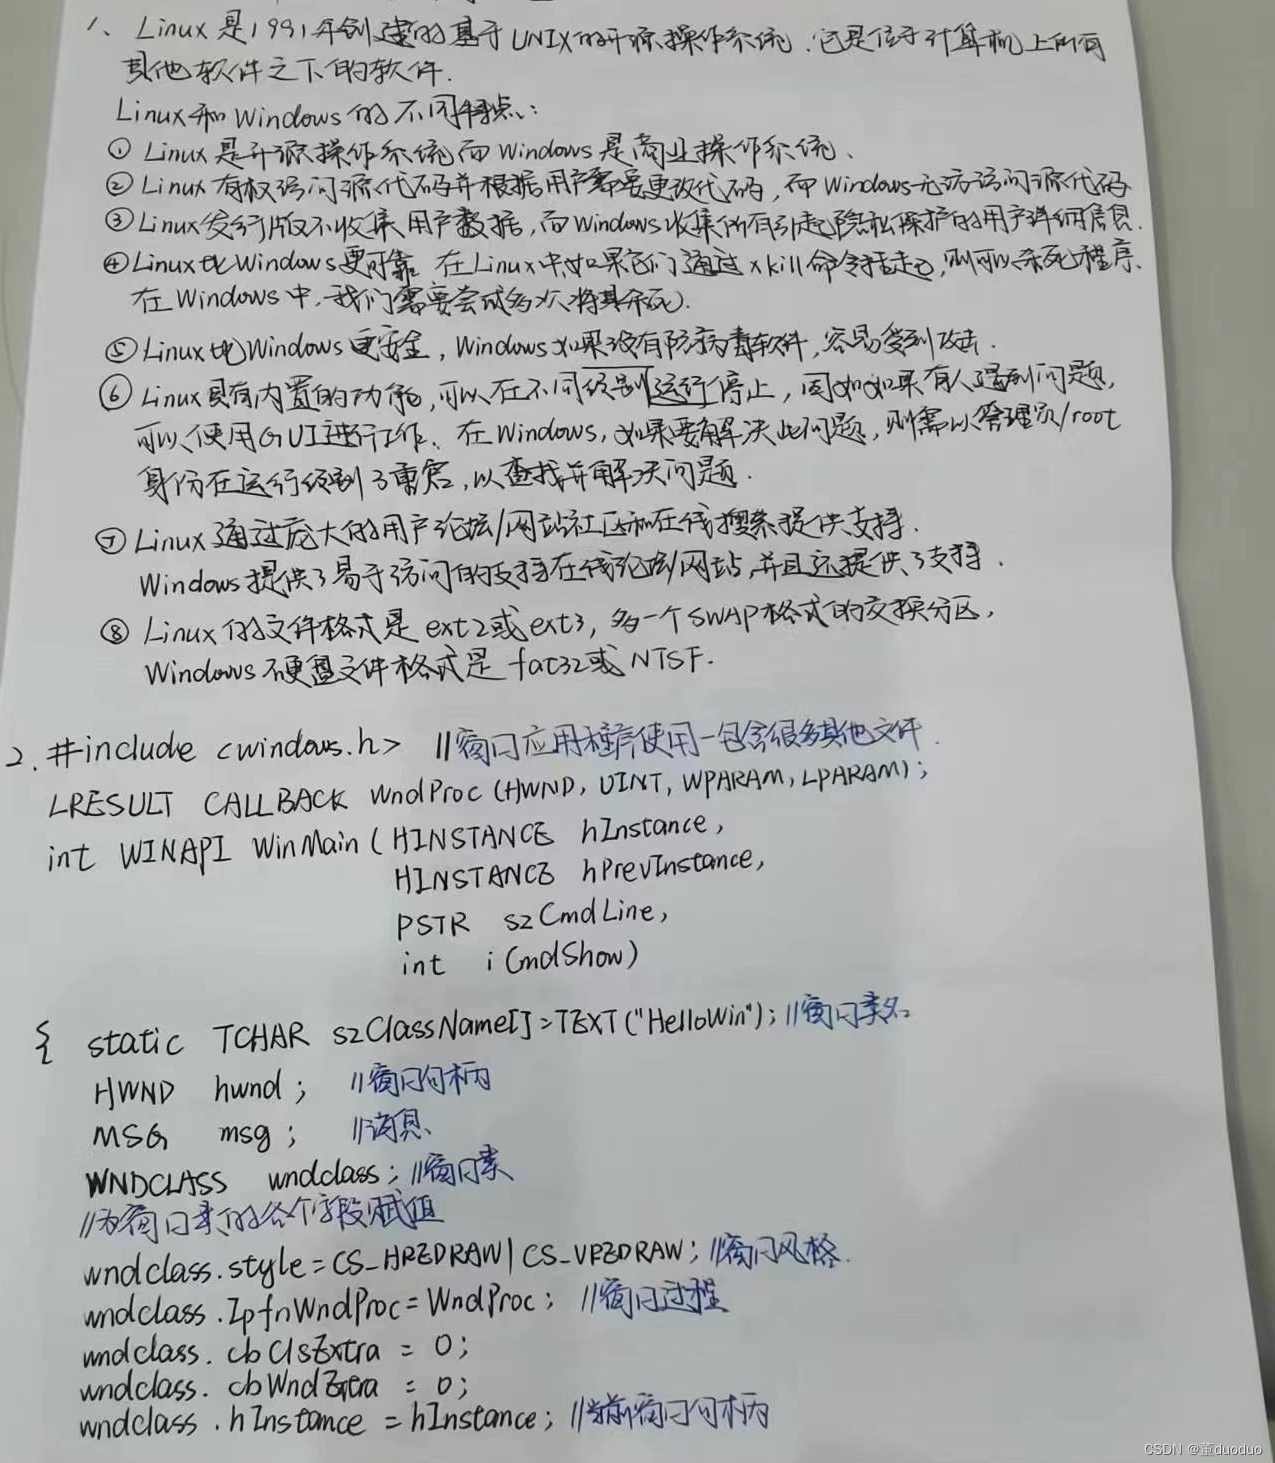 1、Linux是1991年创建的基于UNIX的开源操作系统.它是位于计算机上所有
其他软件之下的软件.
Linux和Windows的不同特点:
① Linux是开源操作系统而Windows是商业操作系统、
② Linux有权访问源代码并根据用户需要更改代码,而Windows无法访问源代码
③ Linux发行版不收集用户数据,而Windows收集所有引起隐私保护的用户详细信息.
④ Linux比Windows更可靠 在Linux中,如果它们通过xkill命令挂起,则可以杀死程序、
在Windows中,我们需要尝试多次将其杀死.
⑤ Linux比Windows更安全,Windows如果没有防病毒软件,容易受到攻击.
⑥ Linux具有内置的功能,可以在不同级别运行停止,因如如果有人遇到问题,
可以使用GUI进行工作、在Windows,如果要解决此问题,则需以管理员/root
身份在运行级别3重启,以查找并解决问题.
⑦ Linux通过庞大的用户论坛/网站社区和在线搜索提供支持.
Windows提供了易于访问的支持在线论坛/网站,并且还提供了支持.
⑧ Linux的文件格式是ext2或ext3,多一个SWAP格式的交换分区,
Windows硬盘文件格式是fat32或NTSF.
2. #include <windows.h> //窗口应用程序使用一包含很多其他文件.
LRESULT CALLBACK WndProc(HWND, UINT, WPARAM, LPARAM);
int WINAPI WinMain(HINSTANCE hInstance,
HINSTANCE hPrevInstance,
PSTR szCmdLine,
int iCmdShow)
{ static TCHAR szClassName[]=TEXT("HelloWin"); //窗口类名
HWND hwnd; //窗口句柄
MSG msg; //消息
WNDCLASS wndclass; //窗口类
//为窗口类的各个字段赋值
wndclass.style=CS_HREDRAW|CS_VREDRAW; //窗口风格.
wndclass.lpfnWndProc=WndProc; //窗口过程
wndclass.cbClsExtra = 0;
wndclass.cbWndExtra = 0;
wndclass.hInstance = hInstance; //当前窗口句柄
CSDN @董duoduo